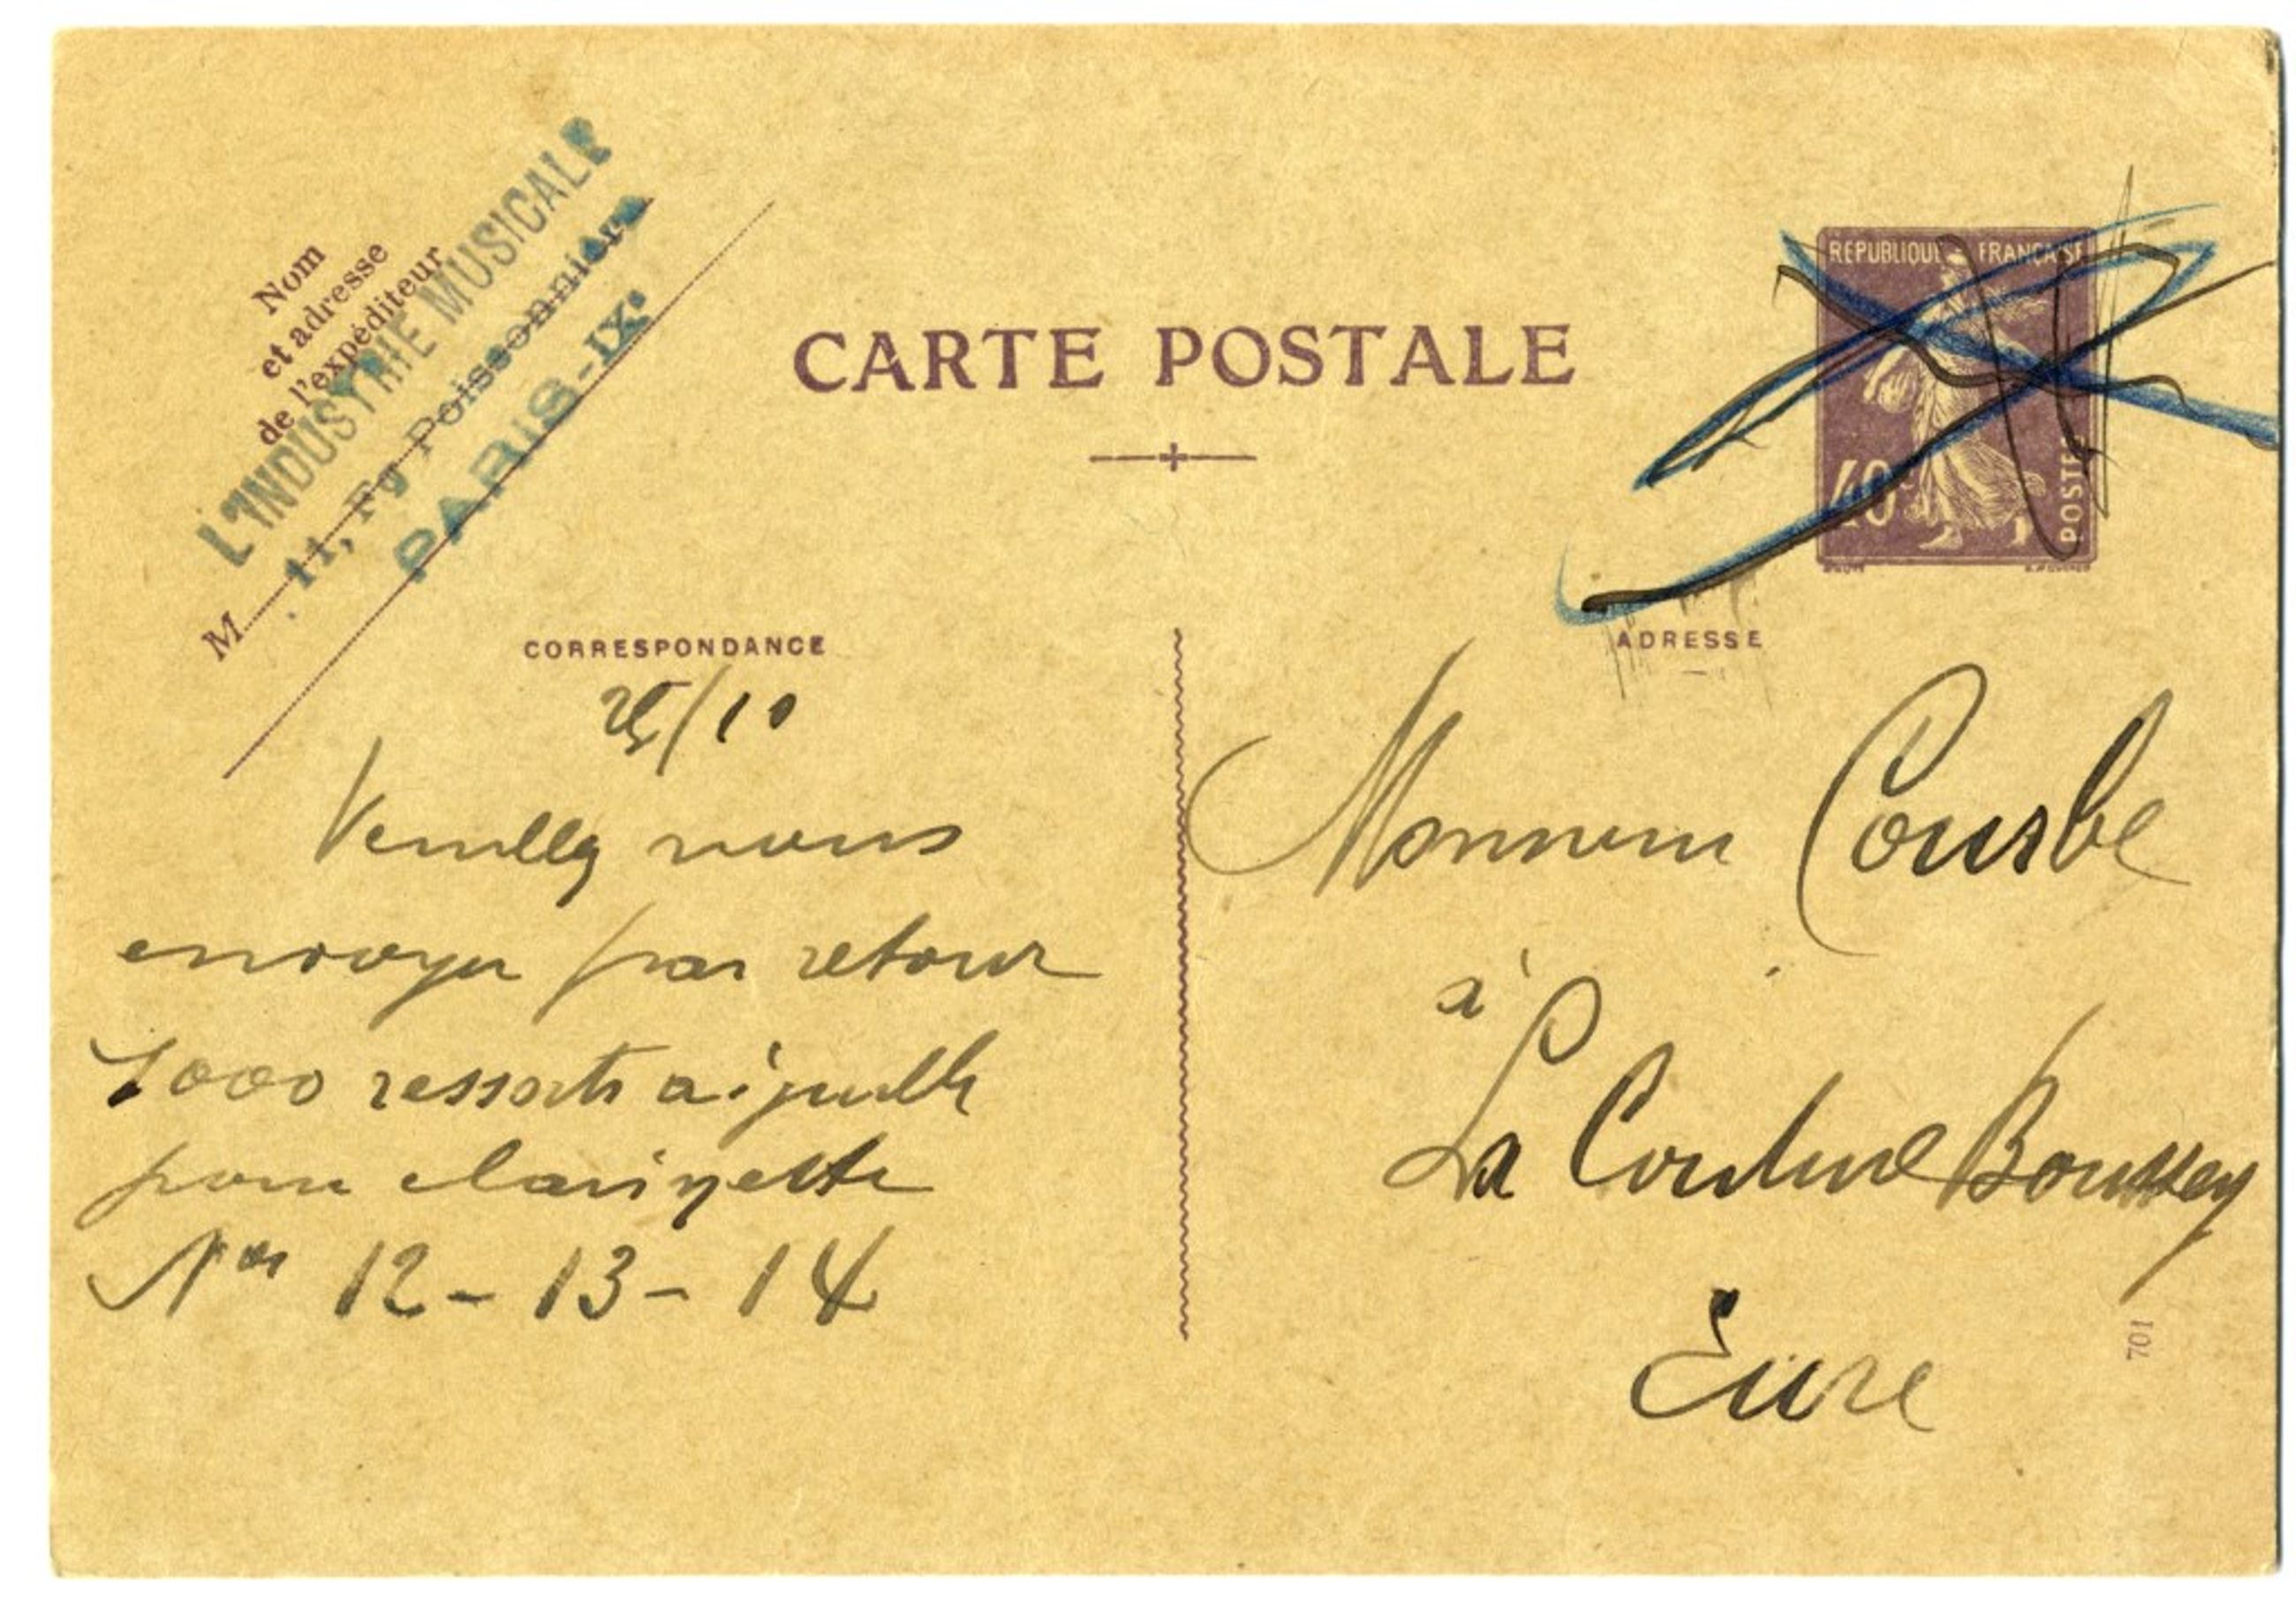 Nom
et adresse
de l'expéditeur
M
L'INDUSTRIE MUSICALE
11, Fg Poissonnière
PARIS-IXe
CARTE POSTALE
REPUBLIQUE FRANÇAISE
40c
POSTES
CORRESPONDANCE
25/10
Veuillez nous
envoyer par retour
1000 ressorts aiguille
pour clarinette
Nos 12-13-14
ADRESSE
Monsieur
à
La Couture Boussey
Eure
701